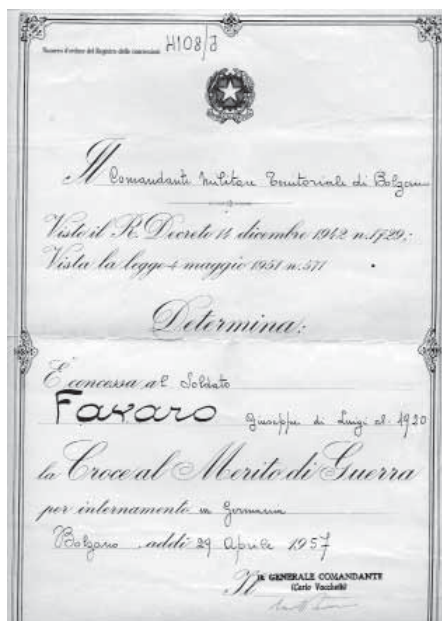 Numero d'ordine del Registro delle concessioni 4108/J
Il Comandante Militare Territoriale di Bolzano
Visto il R. Decreto 14 dicembre 1942 n. 1729;
Vista la legge 4 maggio 1951 n. 571
Determina:
È concessa al Soldato
Favaro Giuseppe di Luigi cl. 1920
la Croce al Merito di Guerra
per internamento in Germania
Bolzano, addì 29 Aprile 1957
Il IL GENERALE COMANDANTE
(Carlo Vacchelli)